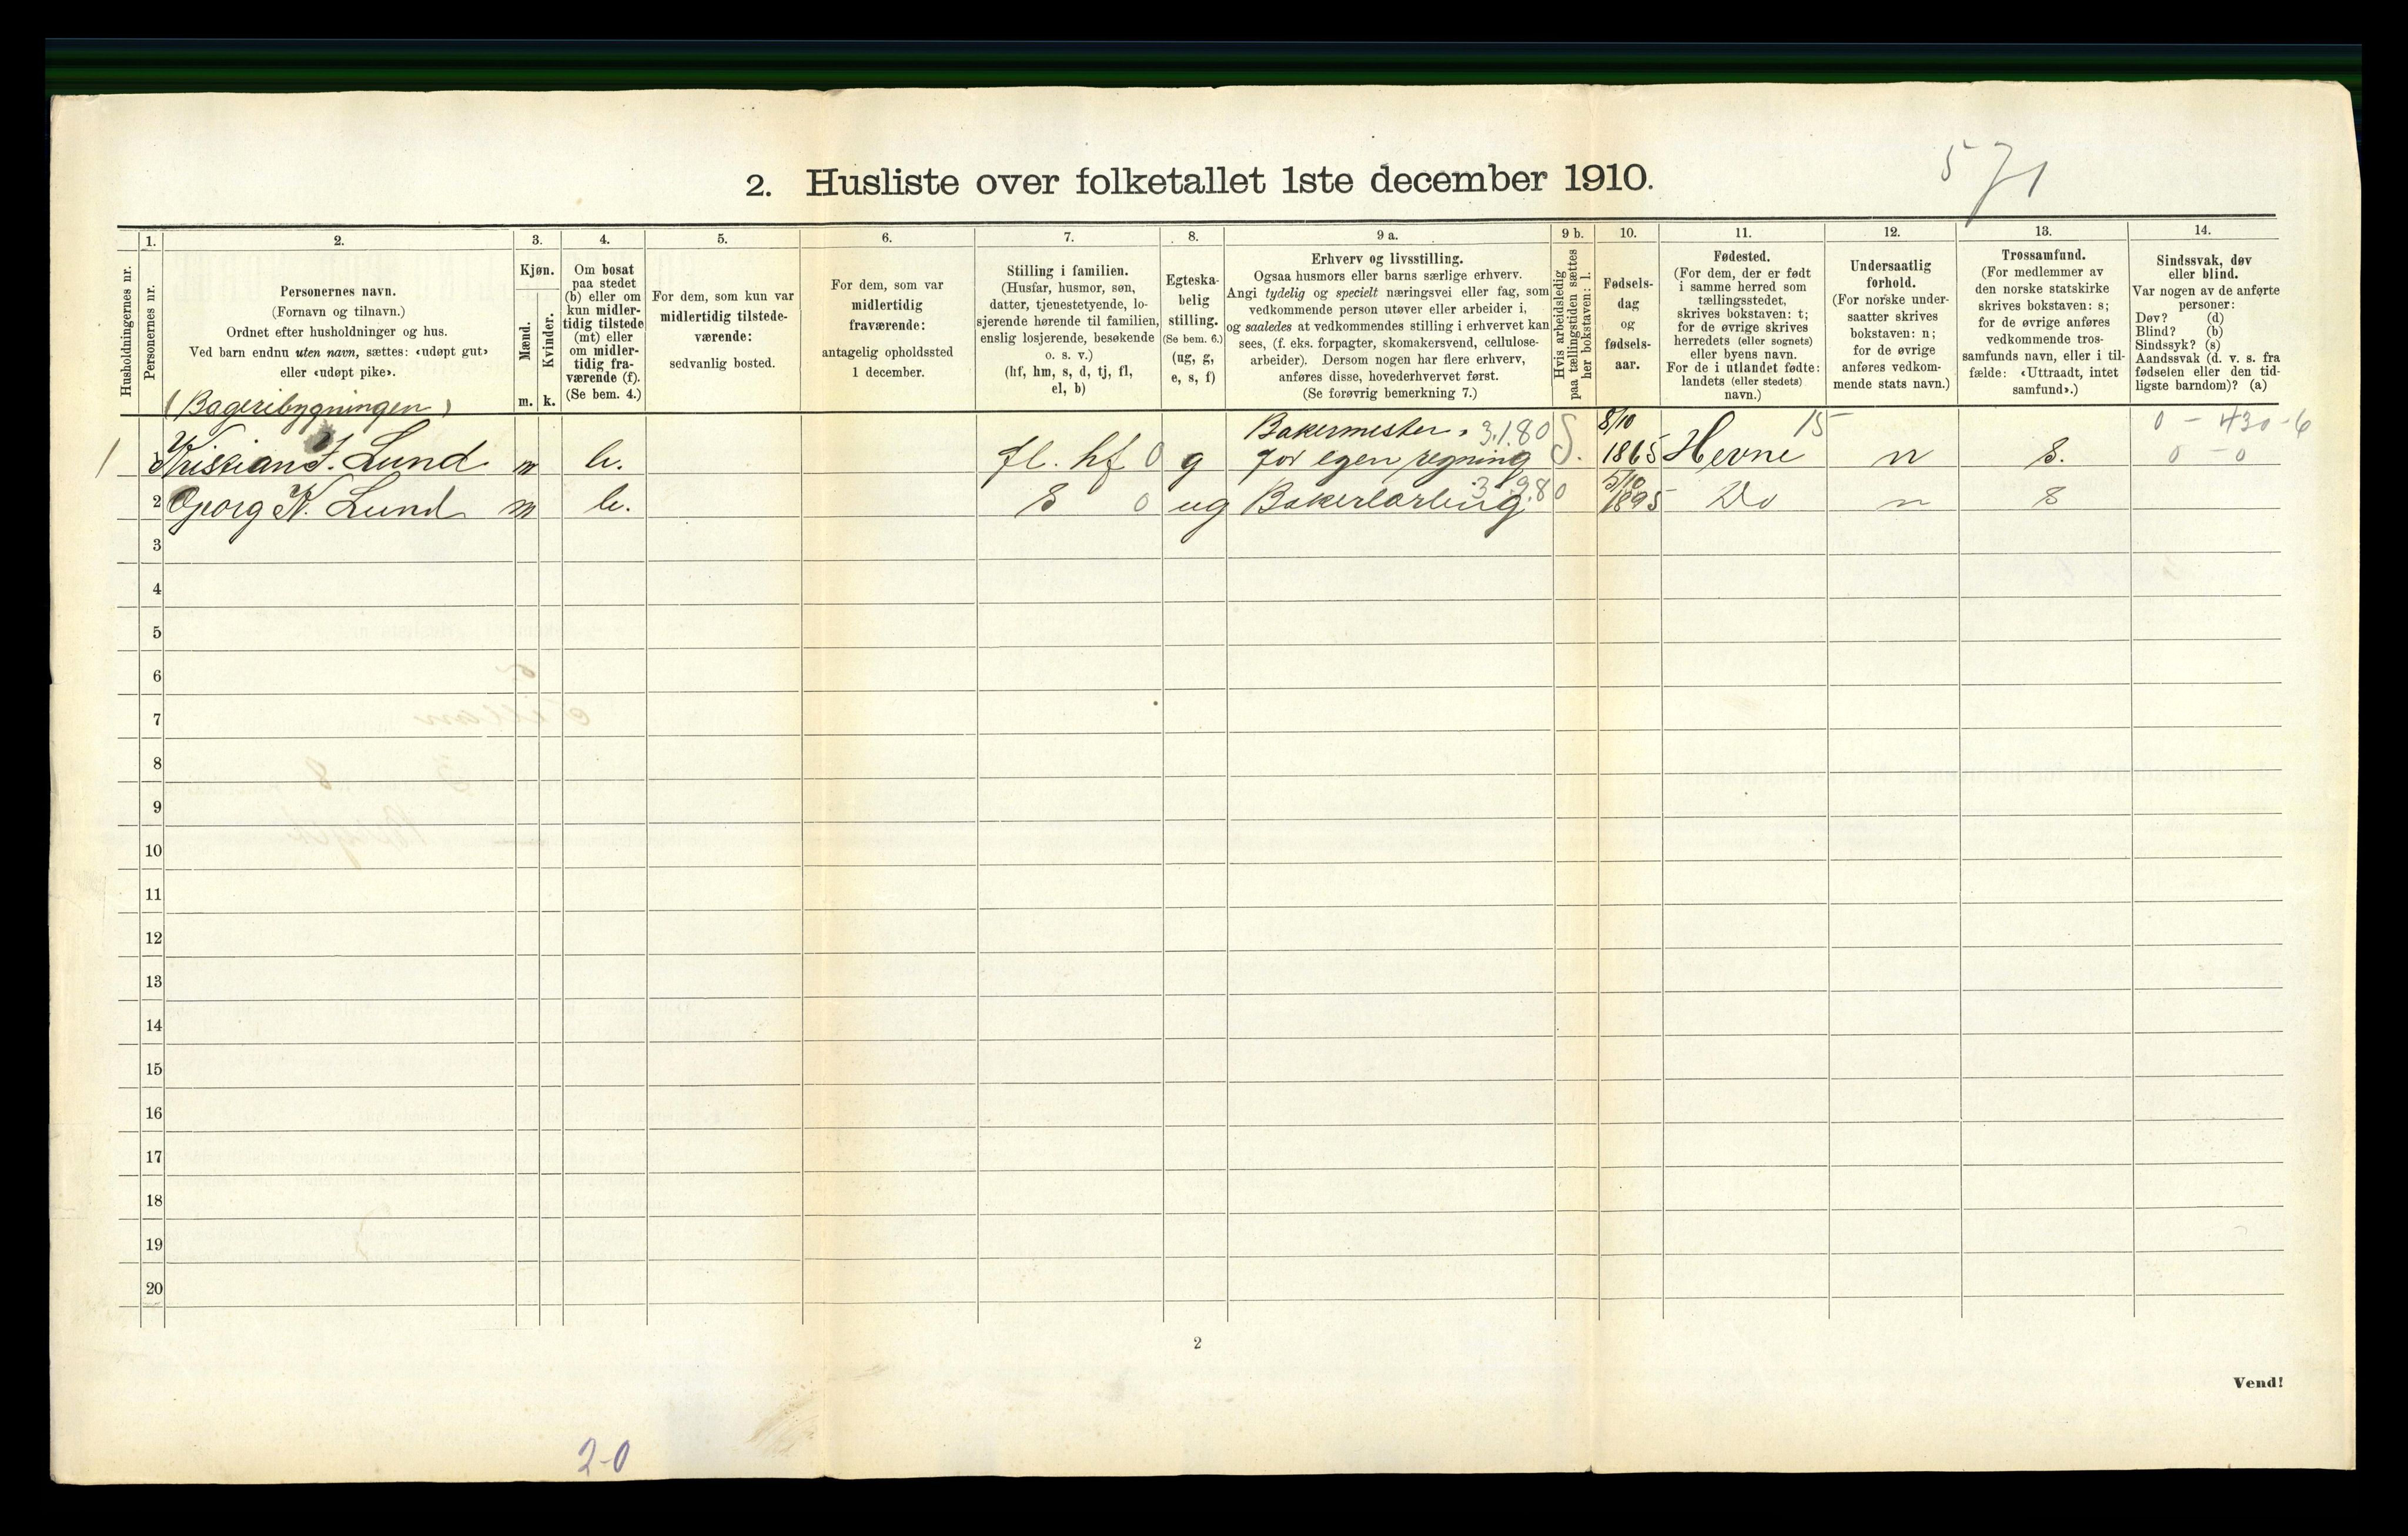 571
2. Husliste over folketallet 1ste december 1910.
Husholdningernes nr.
1.
Personernes nr.
2.
Personernes navn.
(Fornavn og tilnavn.)
Ordnet efter husholdninger og hus.
Ved barn endnu uten navn, sættes: «udøpt gut»
eller «udøpt pike».
3.
Kjøn.
Mænd.
Kvinder.
m. k.
4.
Om bosat
paa stedet
(b) eller om
kun midler-
tidig tilstede
(mt) eller
om midler-
tidig fra-
værende (f).
(Se bem. 4.)
5.
For dem, som kun var
midlertidig tilstede-
værende:
sedvanlig bosted.
6.
For dem, som var
midlertidig
fraværende:
antagelig opholdssted
1 december.
7.
Stilling i familien.
(Husfar, husmor, søn,
datter, tjenestetyende, lo-
sjerende hørende til familien,
enslig losjerende, besøkende
o. s. v.)
(hf, hm, s, d, tj, fl,
el, b)
8.
Egteska-
belig
stilling.
(Se bem. 6.)
(ug, g,
e, s, f)
9 a.
Erhverv og livsstilling.
Ogsaa husmors eller barns særlige erhverv.
Angi tydelig og specielt næringsvei eller fag, som
vedkommende person utøver eller arbeider i,
og saaledes at vedkommendes stilling i erhvervet kan
sees, (f. eks. forpagter, skomakersvend, cellulose-
arbeider). Dersom nogen har flere erhverv,
anføres disse, hovederhvervet først.
(Se forøvrig bemerkning 7.)
9 b.
Hvis arbeidsledig
paa tællingstiden sættes
her bokstaven: l.
10.
Fødsels-
dag
og
fødsels-
aar.
11.
Fødested.
(For dem, der er født
i samme herred som
tællingsstedet,
skrives bokstaven: t;
for de øvrige skrives
herredets (eller sognets)
eller byens navn.
For de i utlandet fødte:
landets (eller stedets)
navn.)
12.
Undersaatlig
forhold.
(For norske under-
saatter skrives
bokstaven: n;
for de øvrige
anføres vedkom-
mende stats navn.)
13.
Trossamfund.
(For medlemmer av
den norske statskirke
skrives bokstaven: s;
for de øvrige anføres
vedkommende tros-
samfunds navn, eller i til-
fælde: «Uttraadt, intet
samfund».)
14.
Sindssvak, døv
eller blind.
Var nogen av de anførte
personer:
Døv? (d)
Blind? (b)
Sindssyk? (s)
Aandssvak (d. v. s. fra
fødselen eller den tid-
ligste barndom)? (a)
(Bageribygningen)
Bakermester, 3.1.80 8/10 15 0 - 430-6
1 Kristian F. Lund m b. fl. hf 0 g for egen regning S. 1865 Hevne n s. 0 - 0
3.9.80 5/10
2 Georg K. Lund m b. s 0 ug Bakerlærling 1895 Do n s
3
4
5
6
7
8
9
10
11
12
13
14
15
16
17
18
19
20
2
Vend!
2-0